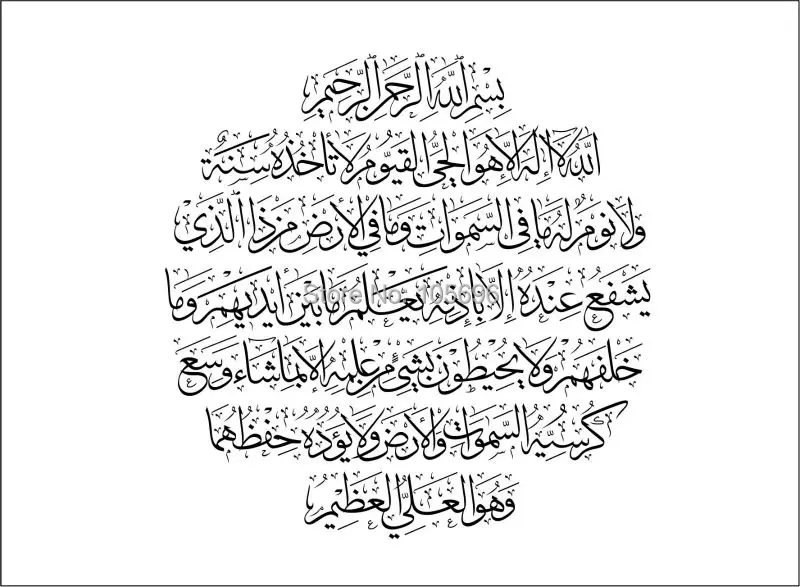 بِسْمِ ٱللَّهِ ٱلرَّحْمٰنِ ٱلرَّحِيْمِ
اللَّهُ لَا إِلَهَ إِلَّا هُوَ الْحَيُّ الْقَيُّومُ لَا تَأْخُذُهُ سِنَةٌ
وَلَا نَوْمٌ لَهُ مَا فِي السَّمَوَاتِ وَمَا فِي الْأَرْضِ مَنْ ذَا الَّذِي
يَشْفَعُ عِنْدَهُ إِلَّا بِإِذْنِهِ يَعْلَمُ مَا بَيْنَ أَيْدِيهِمْ وَمَا
Store No: 105696
خَلْفَهُمْ وَلَا يُحِيطُونَ بِشَيْءٍ مِنْ عِلْمِهِ إِلَّا بِمَا شَاءَ وَسِعَ
كُرْسِيُّهُ السَّمَوَاتِ وَالْأَرْضَ وَلَا يَؤُدُهُ حِفْظُهُمَا
وَهُوَ الْعَلِيُّ الْعَظِيْمُ